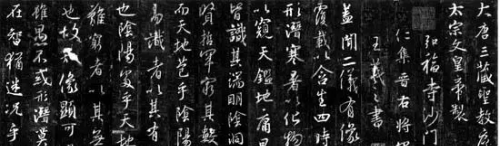 大唐三藏聖教序
太宗文皇帝製
弘福寺沙門
仁集晉右將軍
王羲之書
蓋聞二儀有像
覆載以含生四時
形潛寒暑以化物
以窺天鑑地庸
皆識其端明陰洞
賢哲罕窮其數
而天地苞乎陰陽
易識者以其有
也陰陽處乎天地
難窮者以其無
也故知像顯可
雖愚不惑形潛莫
在智猶迷況乎